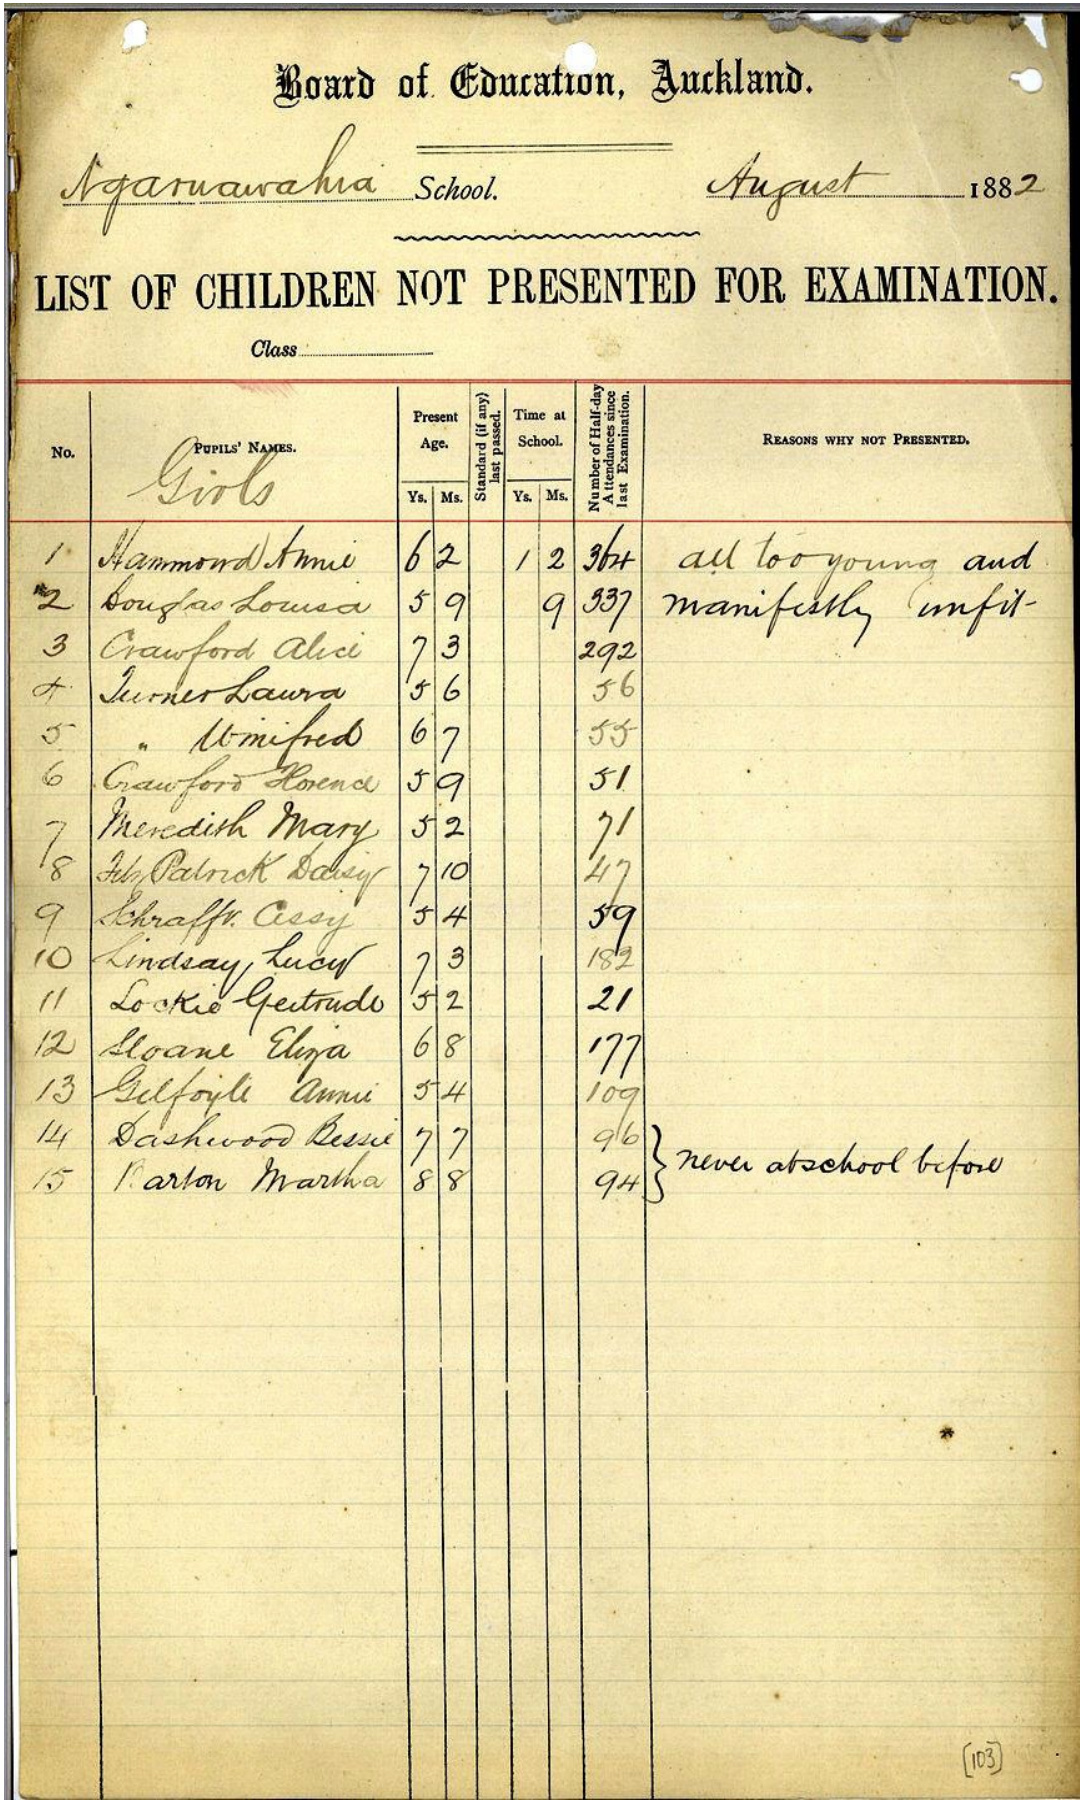 Board of Education, Auckland.
Ngaruawahia School. August 1882
LIST OF CHILDREN NOT PRESENTED FOR EXAMINATION.
Class
No. PUPILS' NAMES. Present Age. Standard (if any) last passed. Time at School. Number of Half-day Attendances since last Examination. REASONS WHY NOT PRESENTED.
Girls
Ys. Ms. Ys. Ms.
1 Hammond Annie 6 2 1 2 364 all too young and
2 Douglas Louisa 5 9 9 337 manifestly unfit
3 Crawford Alice 7 3 292
4 Turner Laura 5 6 56
5 " Winifred 6 7 55
6 Crawford Florence 5 9 51
7 Meredith Mary 5 2 71
8 FitzPatrick Daisy 7 10 47
9 Cissy 5 4 59
10 Lindsay, Lucy 7 3 182
11 Lockie Gertrude 5 2 21
12 Sloane Eliza 6 8 177
13 Gilfoyle Annie 5 4 109
14 Dashwood Bessie 7 7 96
never at school before
15 Barton Martha 8 8 94
[103]